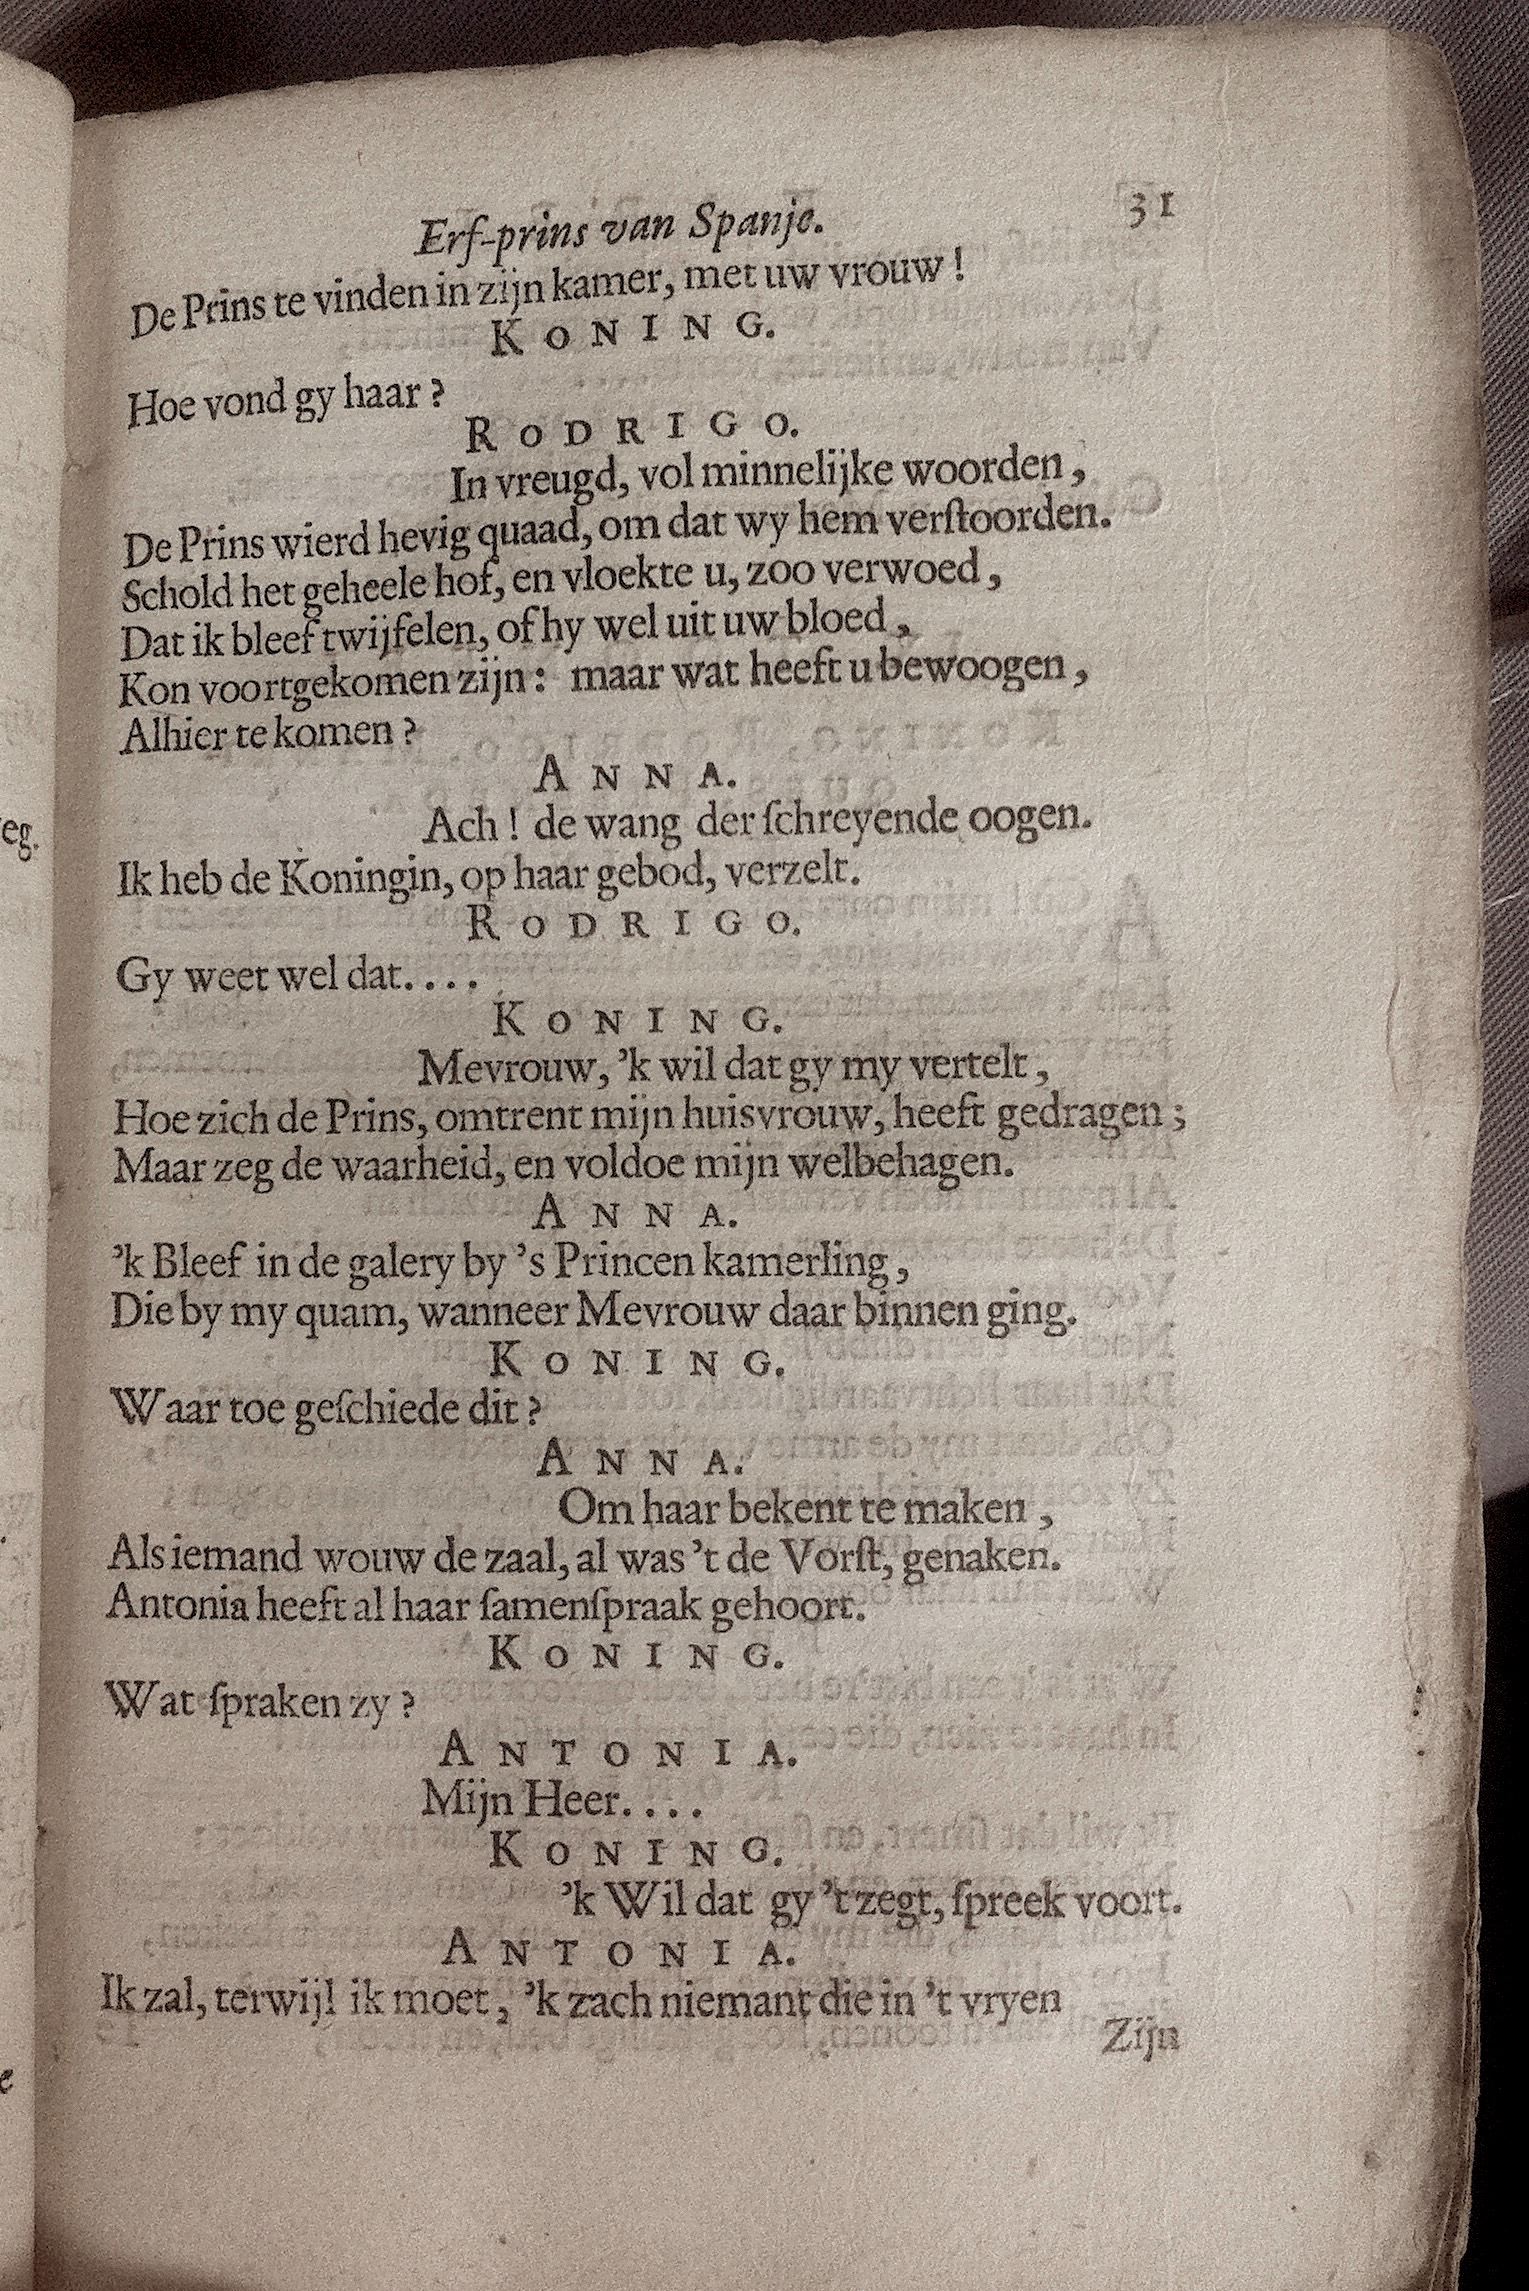 Erf-prins van Spanje. 31
De Prins te vinden in zijn kamer, met uw vrouw!
KONING.
Hoe vond gy haar?
RODRIGO.
In vreugd, vol minnelijke woorden,
De Prins wierd hevig quaad, om dat wy hem verſtoorden.
Schold het geheele hof, en vloekte u, zoo verwoed,
Dat ik bleef twijfelen, of hy wel uit uw bloed,
Kon voortgekomen zijn: maar wat heeft u bewoogen,
Alhier te komen?
ANNA.
Ach! de wang der ſchreyende oogen.
Ik heb de Koningin, op haar gebod, verzelt.
RODRIGO.
Gy weet wel dat....
KONING.
Mevrouw, ’k wil dat gy my vertelt,
Hoe zich de Prins, omtrent mijn huisvrouw, heeft gedragen;
Maar zeg de waarheid, en voldoe mijn welbehagen.
ANNA.
’k Bleef in de galery by ’s Princen kamerling,
Die by my quam, wanneer Mevrouw daar binnen ging.
KONING.
Waar toe geſchiede dit?
ANNA.
Om haar bekent te maken,
Als iemand wouw de zaal, al was ’t de Vorſt, genaken.
Antonia heeft al haar ſamenſpraak gehoort.
KONING.
Wat ſpraken zy?
ANTONIA.
Mijn Heer....
KONING.
’k Wil dat gy ’t zegt, ſpreek voort.
ANTONIA.
Ik zal, terwijl ik moet, ’k zach niemant die in ’t vryen
Zijn
eg.
e